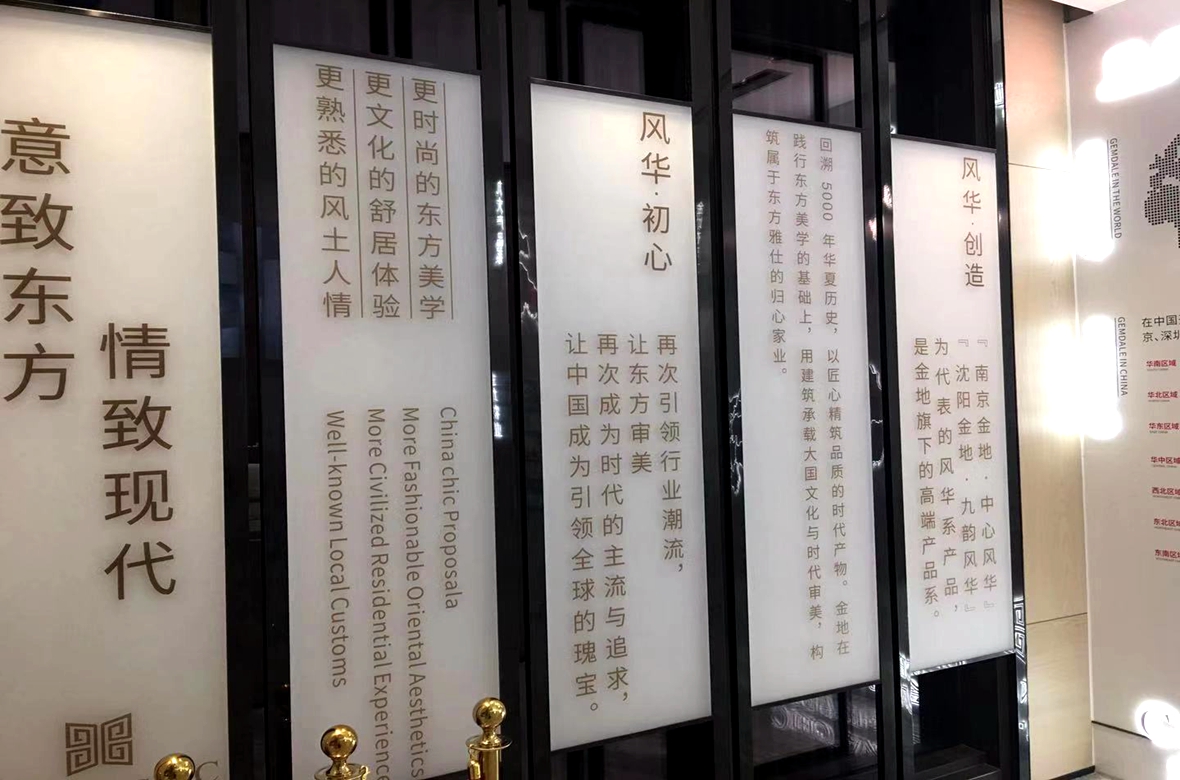 意致东方
情致现代
更时尚的东方美学
更文化的舒居体验
更熟悉的风土人情
China chic Proposala
More Fashionable Oriental Aesthetics
More Civilized Residential Experience
Well-known Local Customs
风华·初心
再次引领行业潮流，
让东方审美
再次成为时代的主流与追求，
让中国成为引领全球的瑰宝。
回溯 5000 年华夏历史，以匠心精筑品质的时代产物。金地在
践行东方美学的基础上，用建筑承载大国文化与时代审美，构
筑属于东方雅仕的归心家业。
风华·创造
『南京金地·中心风华』
『沈阳金地·九韵风华』
为代表的风华系产品，
是金地旗下的高端产品系。
GEMDALE IN THE WORLD
GEMDALE IN CHINA
在中国
京、深圳
华南区域
华北区域
华东区域
华中区域
西北区域
东北区域
东南区域